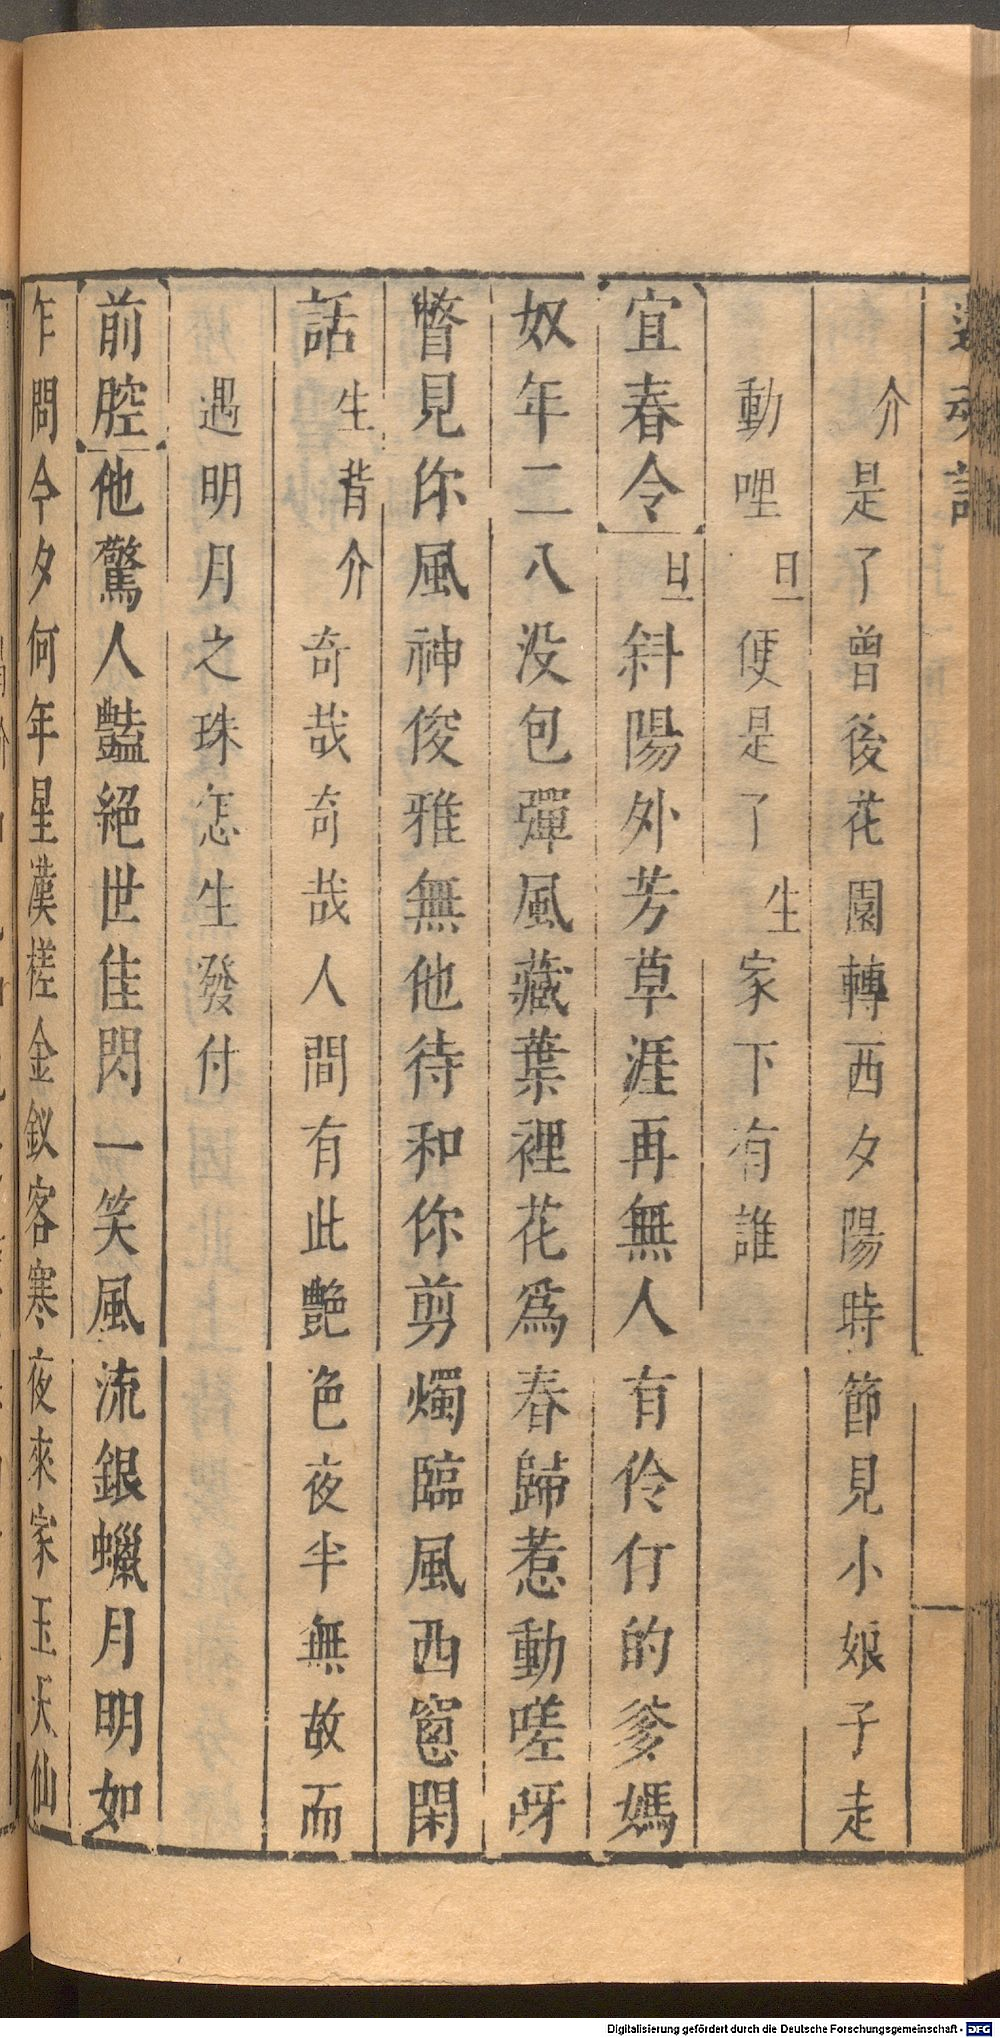 還魂記
介是了曾後花園轉西夕陽時節見小娘子走
動哩旦便是了生家下有誰
宜春令旦斜陽外芳草涯再無人有伶仃的爹媽
奴年二八没包彈風藏葉裡花爲春歸惹動嗟呀
瞥見你風神俊雅無他待和你剪燭臨風西窻閑
話生背介奇哉奇哉人間有此艷色夜半無故而
遇明月之珠怎生發付
前腔他驚人豔絕世佳閃一笑風流銀蠟月明如
乍問今夕何年星漢槎金釵客寒夜來家玉天仙
Digitalisierung gefördert durch die Deutsche Forschungsgemeinschaft - DFG